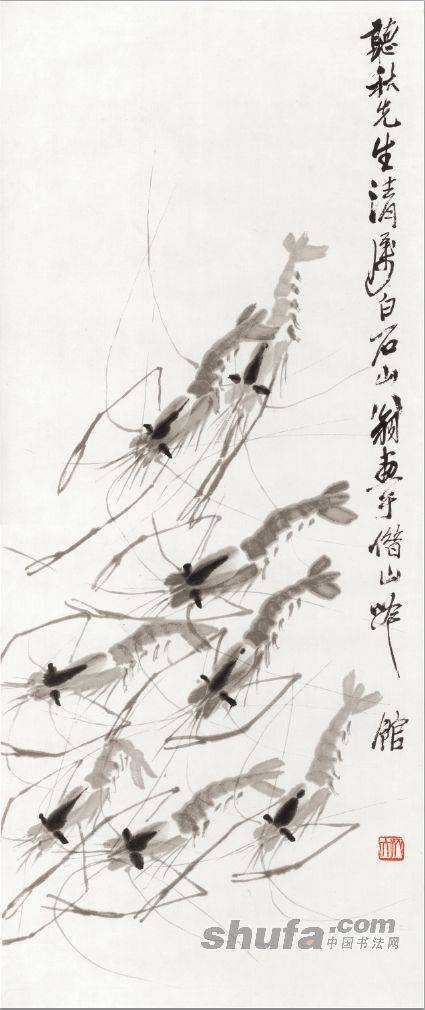 聽秋先生清屬白石山翁畫于借山吟館
shufa.com
中国书法网